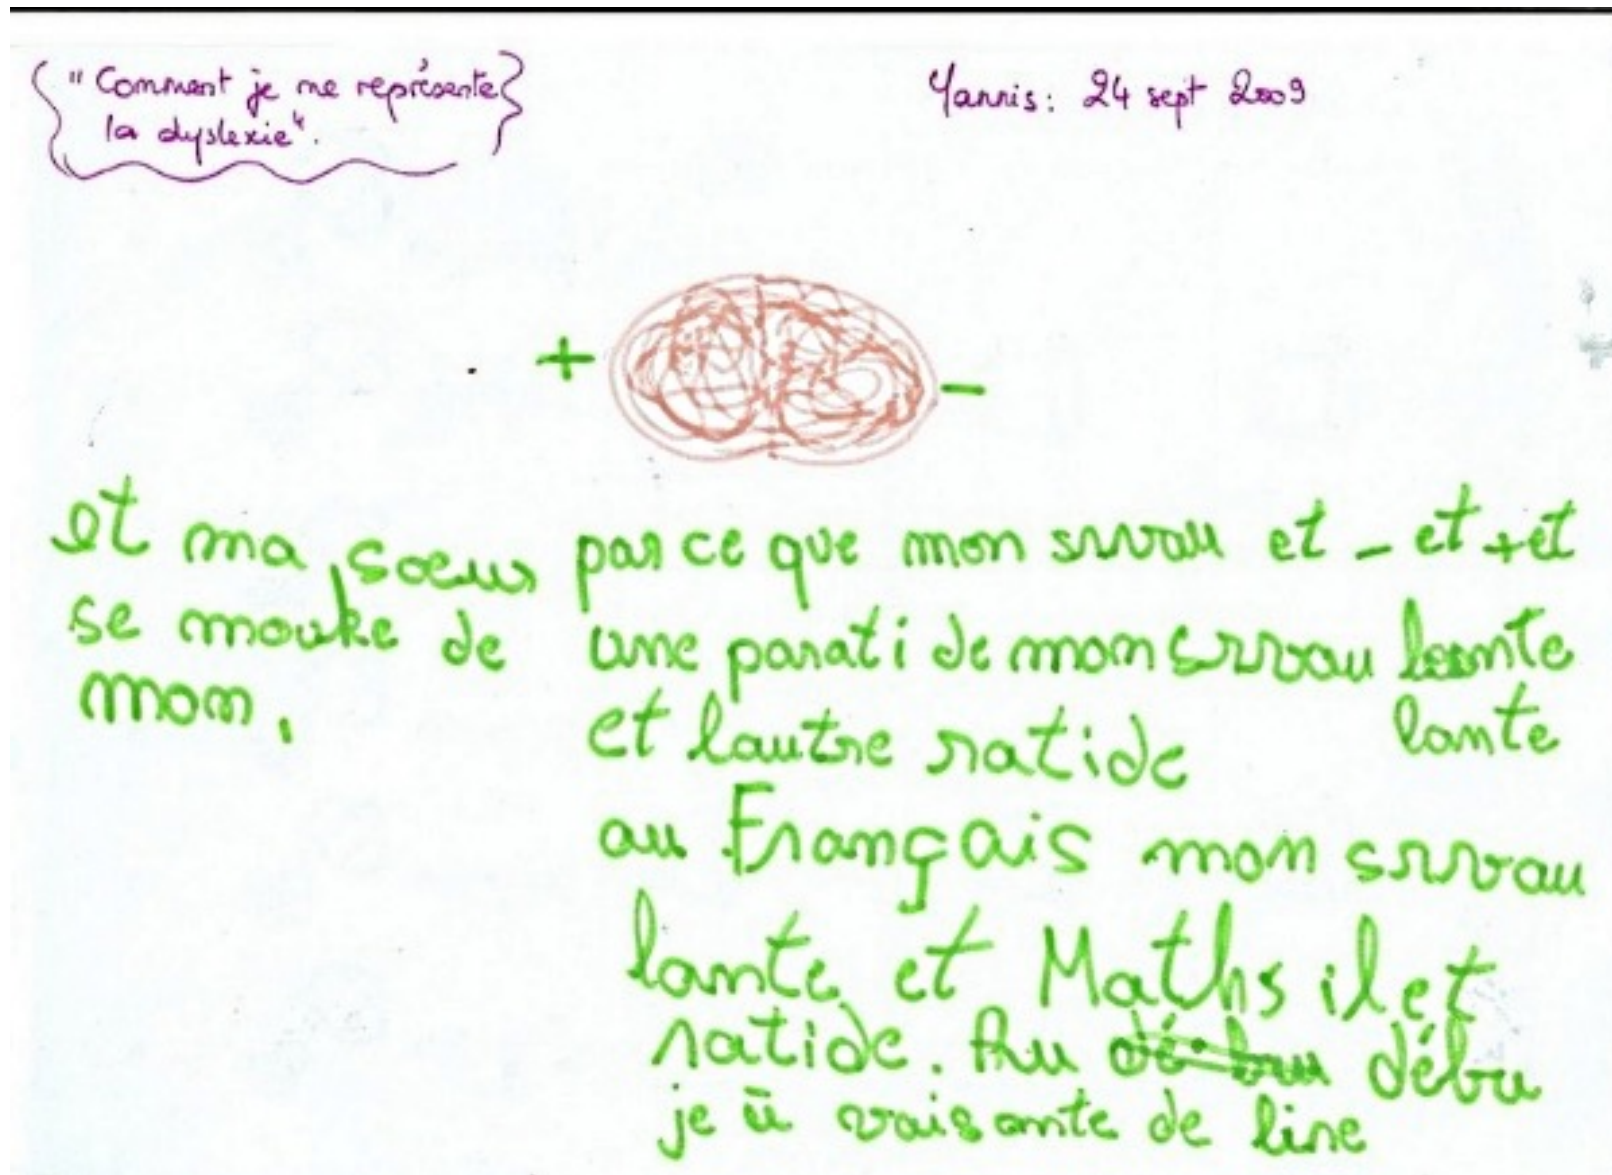 "Comment je me représente
la dyslexie".
Yannis: 24 sept 2009
+
-
et ma soeur
se mouke de
mon.
par ce que mon srrvau et - et + et
une parati de mon srrvau lante
lante
et lautre ratide
au Français mon srrvau
lante et Maths il et
ratide. Au débu
je ū vais ante de line